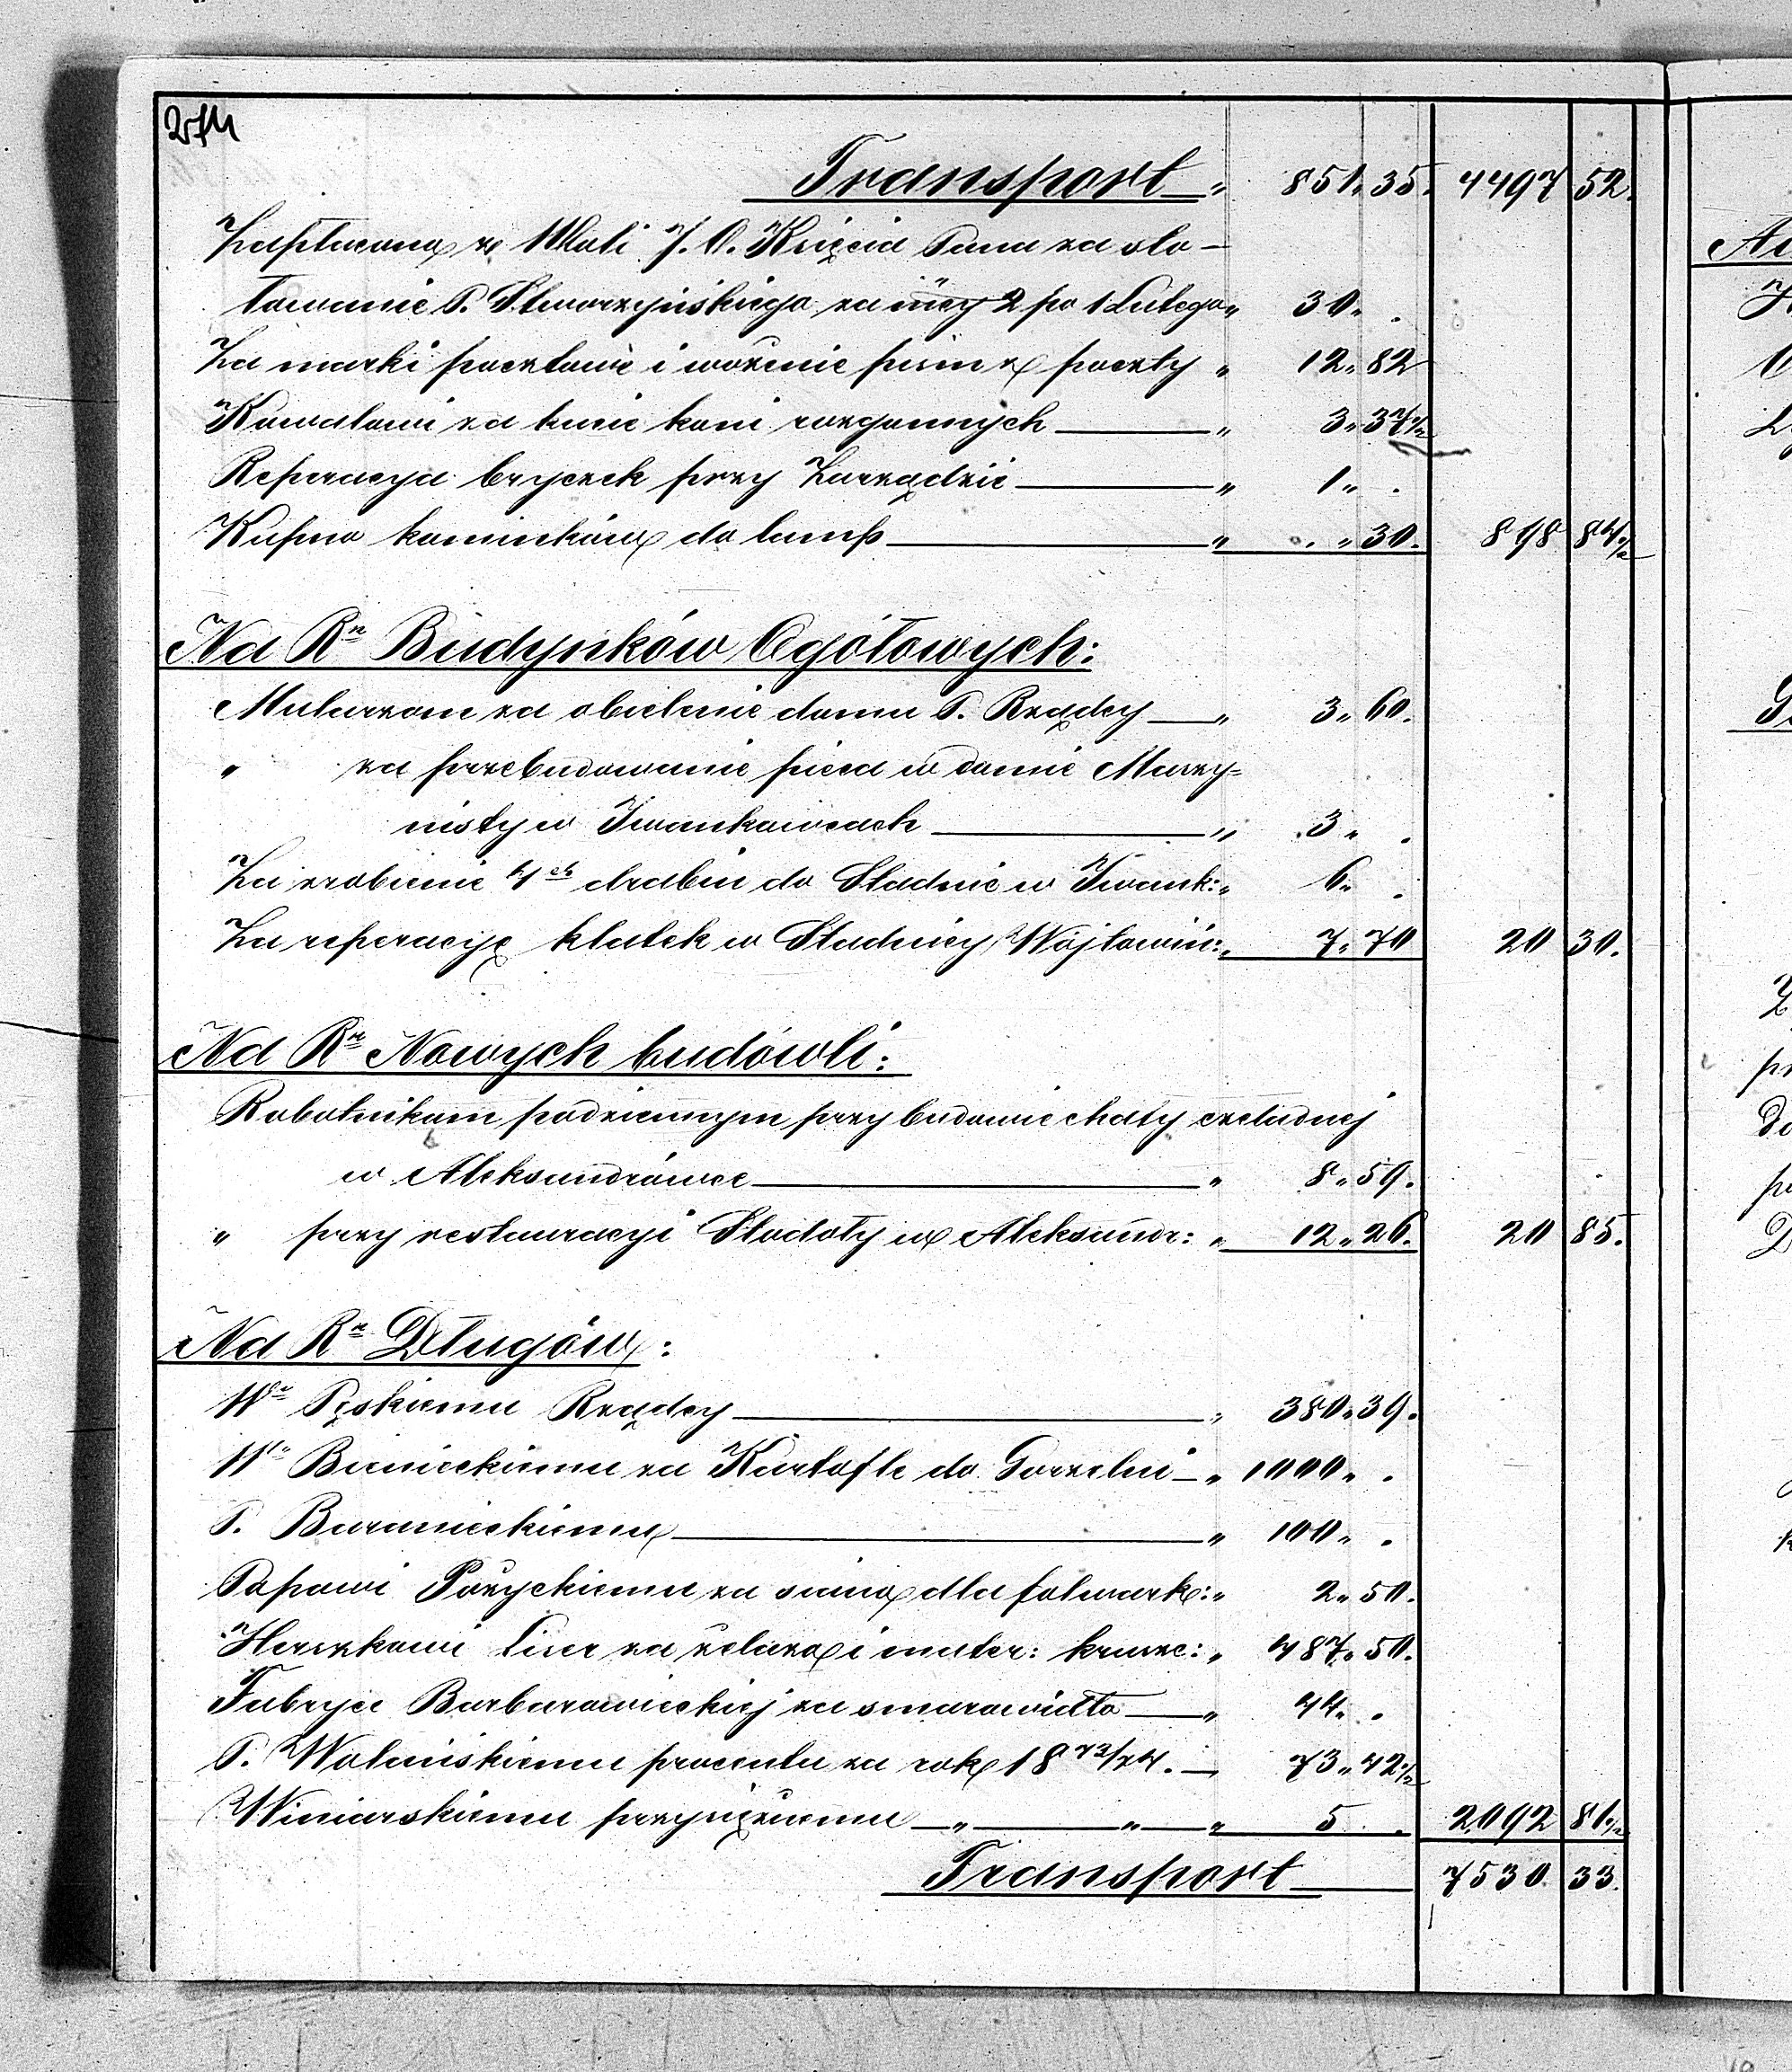 274
Transport " 851 " 35. 4497 52.
Zapłacono z Woli J. O. Księcia Pana za sto-
łowanie P. Stworzyńskiego za m̃cy 2 po 1 Lutego " 30 " .
Za marki pocztowe i wożenie pism z poczty " 12 " 82
Kowalowi za kucie koni rozgonnych " 3 " 37½
Reperacya bryczek przy Zarządzie " 1 " .
Kupno kominków do lamp " . " 30. 898 84½
Na Rn Budynków Ogółowych:
Mularzom za obielenie domu P. Rządcy " 3 " 60.
" za przebudowanie pieca w domie Maszy-
nisty w Iwankowcach " 3 " .
Za zrobienie 4ch drabin do Stadnic w Iwank: " 6 " .
Za reperacyę klatek w Stadnicy Wójtowin: " 7 " 70 20 30.
Na Rn Nowych budowli:
Robotnikom podziennym przy budowie chaty czeladnej
w Aleksandrówce " 8 " 59.
" przy restauracyi Stodoły w Aleksandr: " 12 " 26. 20 85.
Na Rn Długów:
Wu Pęskiemu Rządcy " 380 " 39.
Wu Bienieckiemu za Kartofle do Gorzelni " 1000 " .
P. Baranieckiemu " 100 " .
Popowi Pożyckiemu za siano dla folwark: " 2 " 50.
Herszkowi Liser za żelazo i mater: kruszc: " 487 " 50.
Fabryce Barbarowieckiej za smarowidło " 44 " .
P. Wolańskiemu procentu za rok 18 73/74. 73 " 42½
Winiarskiemu przysiężnemu " " " 5 . 2092 81½
Transport 7530. 33.